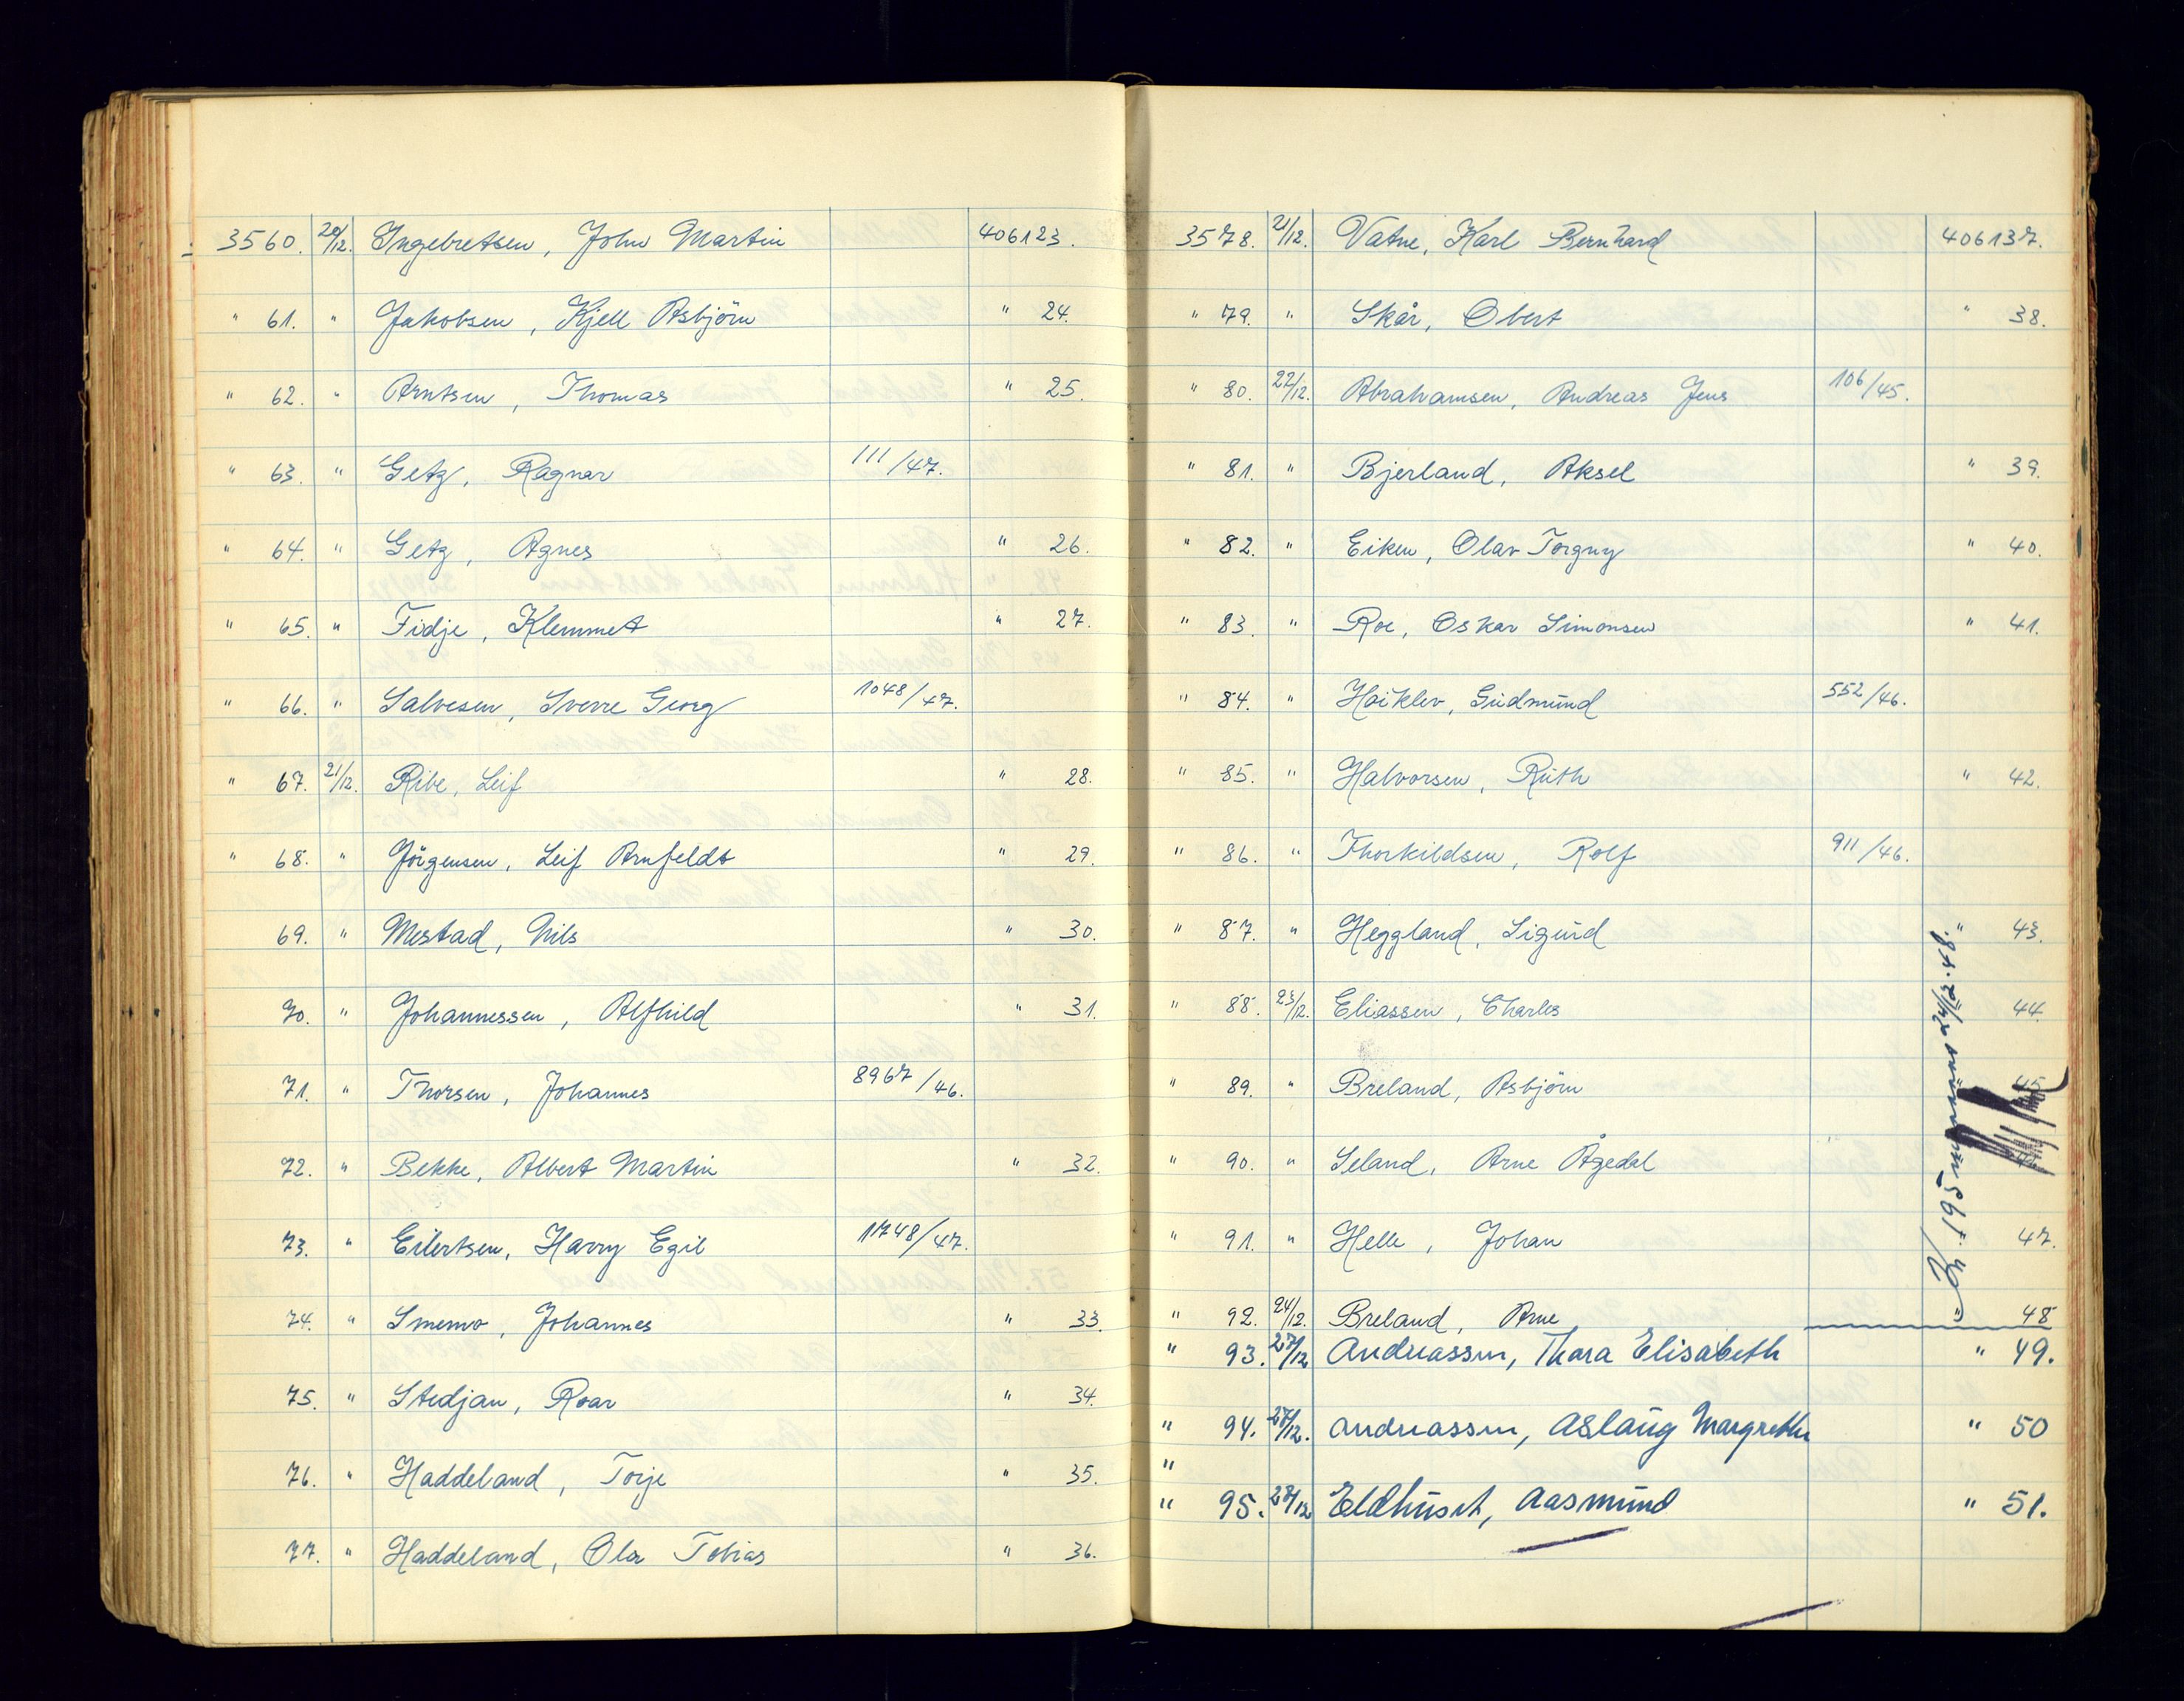 3560. 20/12. Ingebretsen, John Martin 406123.
" 61. " Jakobsen, Kjell Asbjörn " 24.
" 62. " Arntsen, Thomas " 25.
" 63. " Getz, Ragnar 111/47.
" 64. " Getz, Agnes " 26.
" 65. " Fidje, Klemmet " 27.
" 66. " Salvesen, Sverre Georg 1048/47.
" 67. 21/12. Ribe, Leif " 28.
" 68. " Jörgensen, Leif Arnfeldt " 29.
69. " Mestad, Nils " 30.
70. " Johannessen, Alfhild " 31.
71. " Thorsen, Johannes 8967/46.
72. " Bekke, Albert Martin " 32.
73. " Eilertsen, Harry Egil 11748/47.
74. " Smemo, Johannes " 33.
75. " Stedjan, Roar " 34.
76. " Haddeland, Torje " 35.
77. " Haddeland, Ola Tobias " 36.
3578. 21/12. Vatne, Karl Bernhard 406137.
" 79. " Skår, Obert " 38.
" 80. 22/12. Abrahamsen, Andreas Jens 106/45.
" 81. " Bjerland, Aksel " 39.
" 82. " Eiken, Olav Torgny " 40.
" 83. " Roe, Oskar Simonsen " 41.
" 84. " Hoiklev, Gudmund 552/46.
" 85. " Halvorsen, Ruth " 42.
" 86. " Thorkildsen, Rolf 911/46.
" 87. " Heggland, Sigurd " 43.
" 88. 23/12. Eliassen, Charles 44.
" 89. " Breland, Asbjörn 45.
" 90. " Seland, Arne Ågedal
" 91. " Helle, Johan 47.
" 92. 24/12. Breland, Arne " 48
" 93. 27/12 Andreassen, Thora Elisabeth " 49.
" 94. 27/12. Andreassen, Aslaug Margrethe " 50
"
" 95. 28/12 Eldhuset, Aasmund " 51.
195 24/12.48.